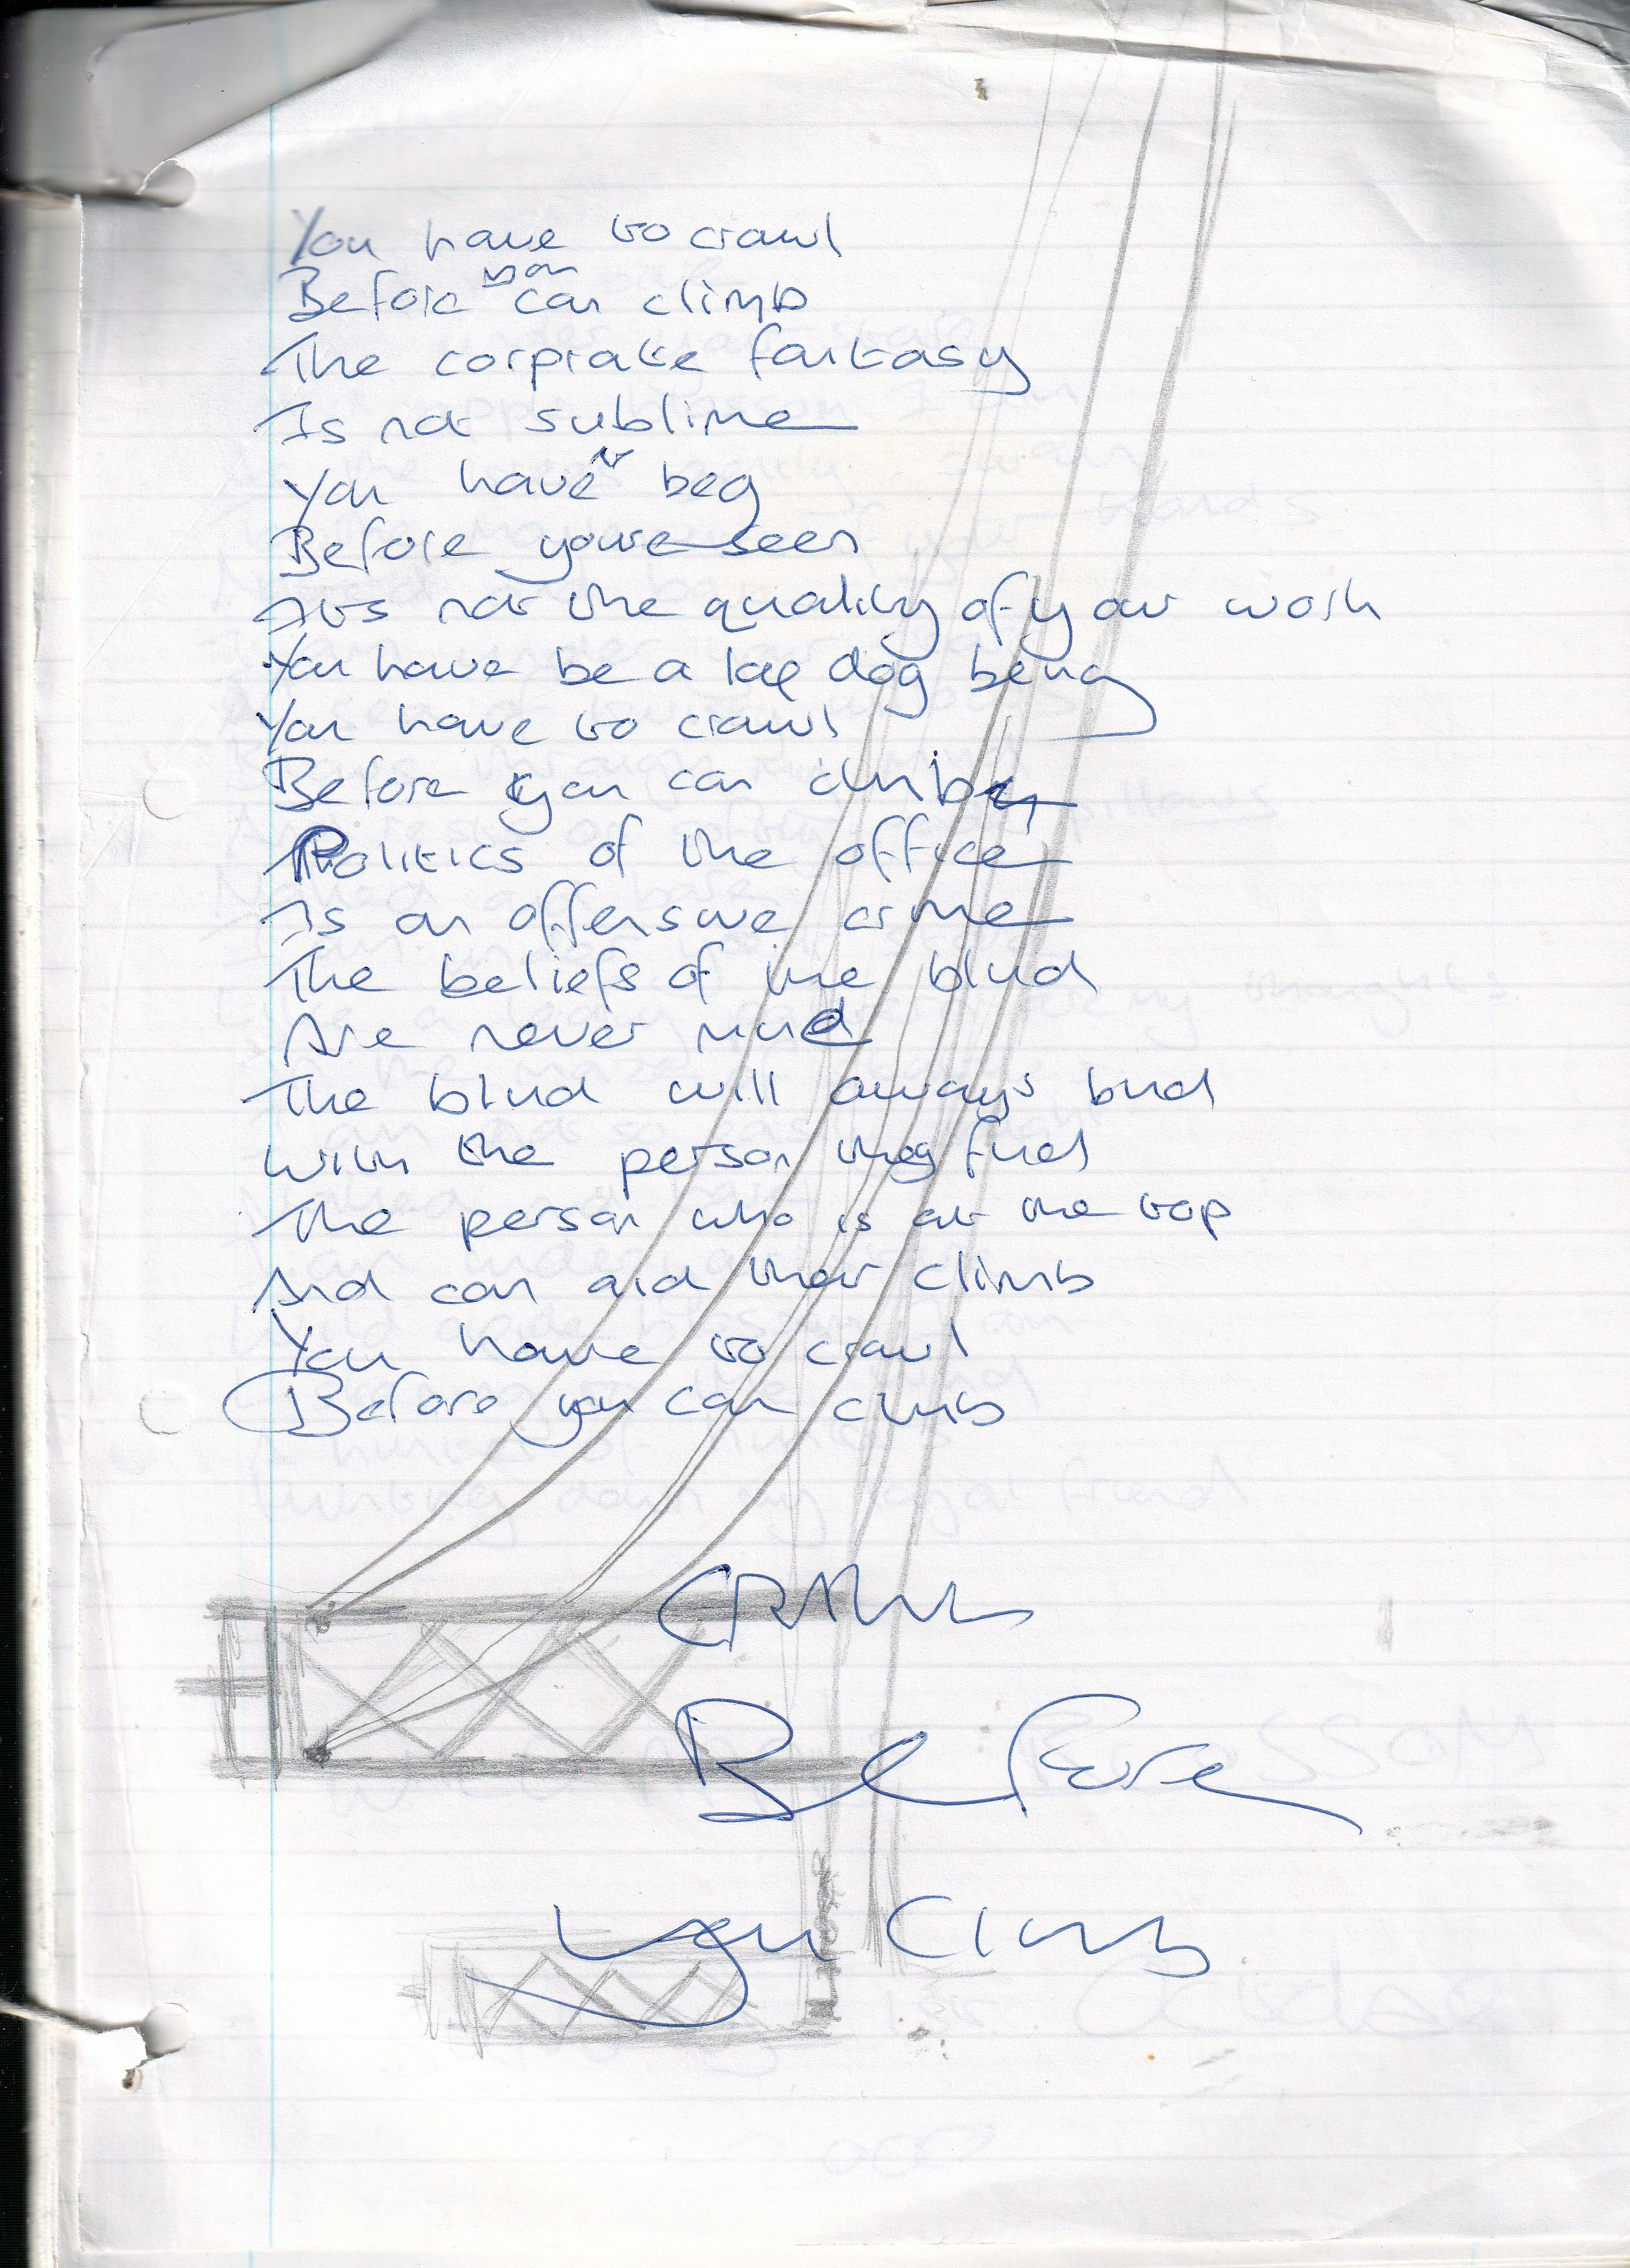 You have to crawl
Before you can climb
The corprate fantasy
Is not sublime
You have to beg
Before youre seen
Its not the quality of your work
You have be a lap dog being
You have to crawl
Before you can climb
Politics of the office
Is an offensive crime
The beliefs of the blind
Are never mine
The blind will always bind
With the person they find
The person who is at the top
And can aid their climb
You have to crawl
Before you can climb
CRAWL
Before
you Climb